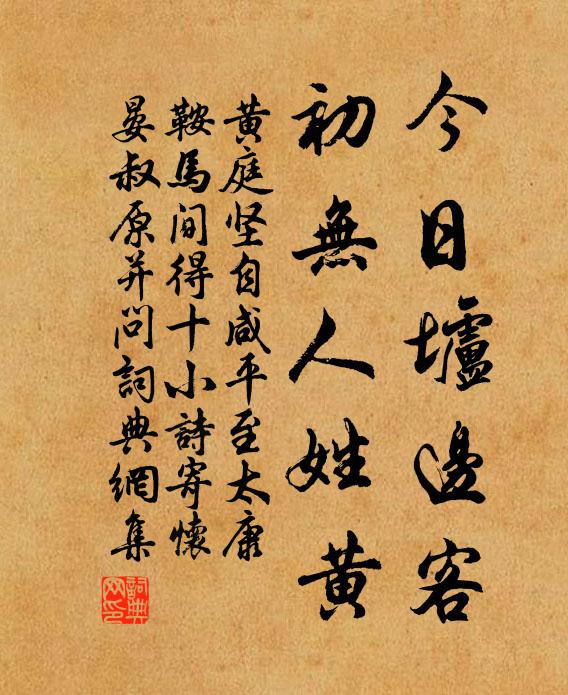 今日壚邊客
初無人姓黄
黄庭坚自咸平至太康
鞍馬间得十小詩寄懷
晏叔原并问詞典網集
詞典
网印